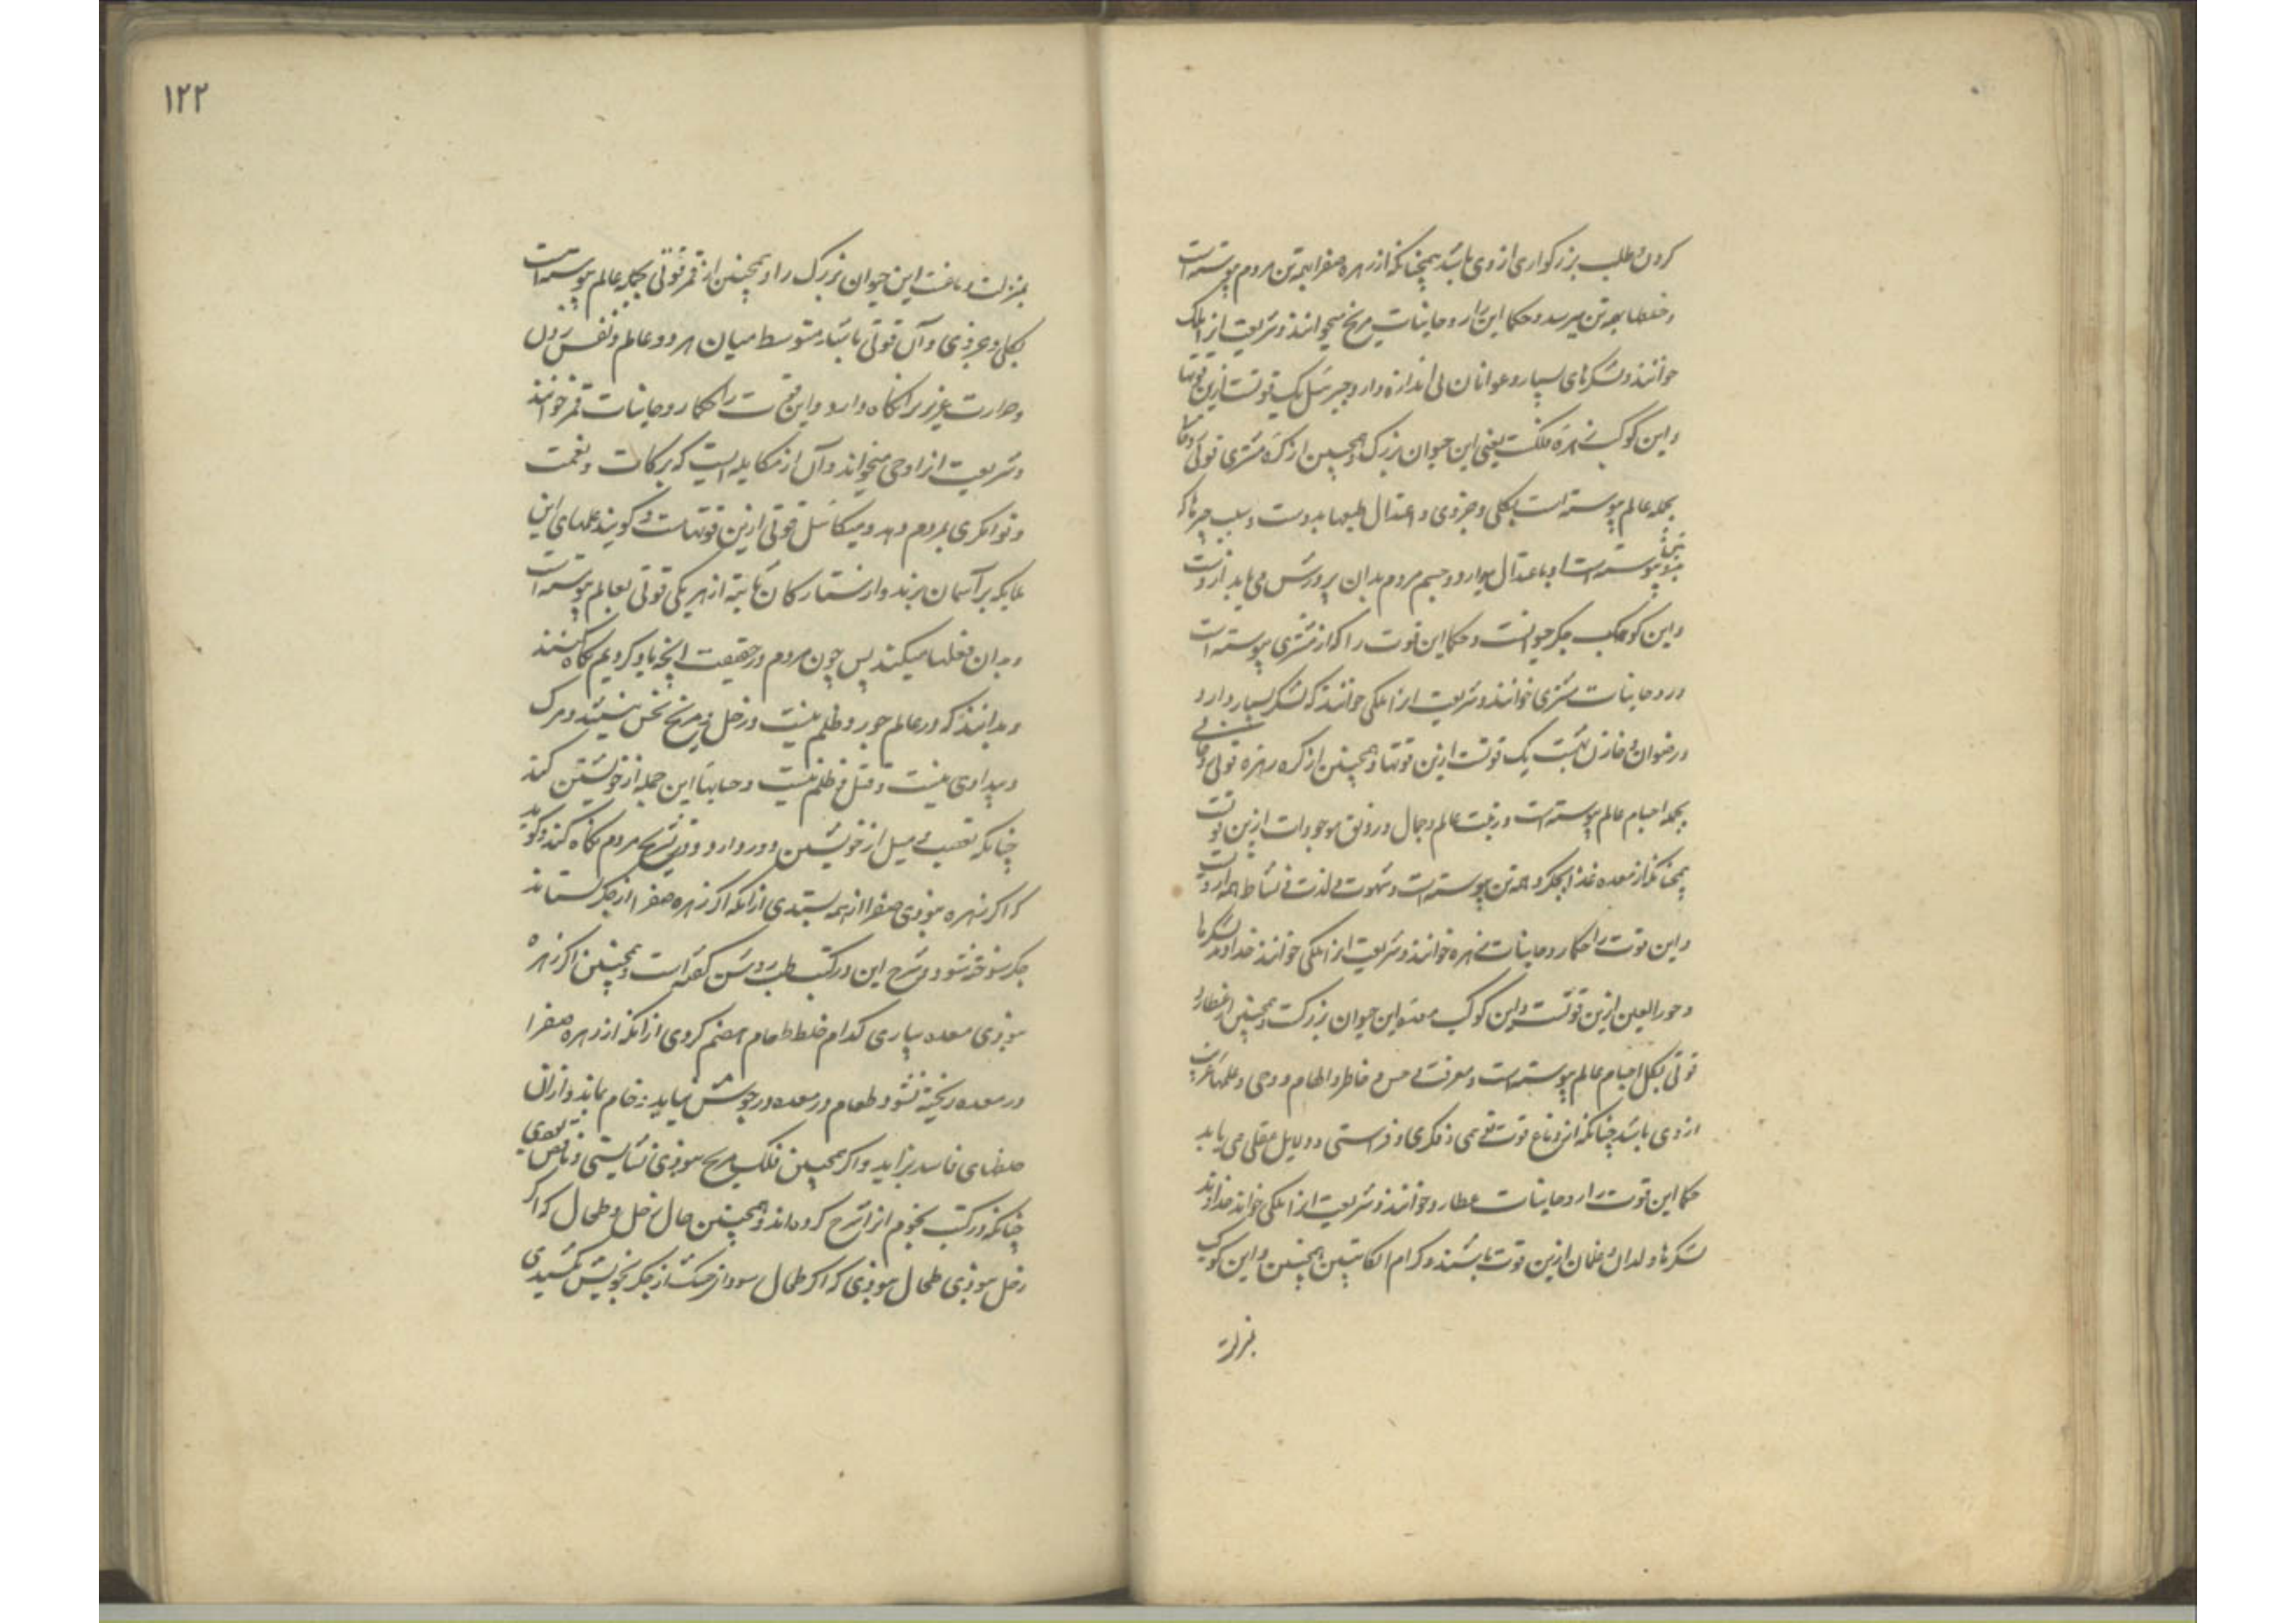 کردن و طلب بزرکواری از وی باشد همچنانکه از زهره صفرا بهمه تن مردم پیوسته است
و خلطها بهمه تن میرسد و حکما این را روحانیات مریخ میخوانند و شریعت انرا ملک
خوانند و لشکرهای بسیار و عوانان بی اندازه دارد و جبرئیل یک قوتست ازین قوتها
و این کوکب زهره فلکست یعنی این حیوان بزرک و همچنین از کره مشتری قوتی روحانی
بجمله عالم پیوسته است بکلی و جزوی و اعتدال طبعها بدوست و سبب چیزها که
پیوسته است او باعتدال میدارد و جسم مردم بدان پرورش می یابد ازوست
و این کوکب جکر حیوانست و حکما این قوت را که از مشتری پیوسته است
روحانیات مشتری خوانند و شریعت انرا ملکی خوانند که لشکر بسیار دارد
و رضوان و خازن بهشت یک قوتست ازین قوتها و همچنین از کره زهره قوتی روحانی
بجمله اجسام عالم پیوسته است و زینت عالم و جمال و رونق موجودات ازین قوت
همچنانکه از معده غذا بجکر و همه تن پیوسته است و شهوت و لذت و نشاط همه ازوست
و این قوت را حکما روحانیات زهره خوانند و شریعت انرا ملکی خوانند خداوند لشکرها
و حورالعین ازین قوتست و این کوکب معده این حیوان بزرکست و همچنین از عطارد
قوتی بکل اجسام عالم پیوسته است و معرفت و حس و خاطر و الهام و وحی و علمها غریب
از وی باشد چنانکه از دماغ قوت وهمی و فکری و فراستی و دلایل عقلی می یابد
حکما این قوت را روحانیات عطارد خوانند و شریعت انرا ملکی خواند خداوند
لشکرها و ولدان و غلمان ازین قوت باشند و کرام الکاتبین همچنین و این کوکب
بمنزلت
۱۲۲
بمنزلت دماغست این حیوان بزرک را و همچنین از قمر قوتی بجمله عالم پیوسته است
بکلی و جزوی و آن قوتی باشد متوسط میان هر دو عالم و نفس زدن
و حرارت غریزی را نکاه دارد و این قوت را حکما روحانیات قمر خوانند
و شریعت انرا وحی میخواند و آن از مکایلست که برکات و نعمت
و توانکری بمردم دهد و میکائیل قوتی ازین قوتهاست و کویند عملهای این
ملایکه بر آسمان برند و از ستارکان ثابته از هر یکی قوتی بعالم پیوسته است
و بدان فعلها میکنند پس چون مردم در حقیقت انچه یاد کردیم نکاه کنند
و بدانند که در عالم جور و ظلم نیست و زحل و مریخ نحس نیستند و مرک
و بیدادی نیست و قتل و ظلم نیست و حسابها این جمله از خویشتن کند
چنانکه تعصب و میل از خویشتن دور دارد و در تشریح مردم نکاه کند و کوید
که اکر زهره نبودی صفرا از همه بستدی از انکه اکر زهره صفرا از جکر نستاند
جکر سوخته شود و شرح این در کتب طب روشن کفته است و همچنین اکر زهره
نبودی معده بیاری کدام خلط طعام هضم کردی از انکه از زهره صفرا
در معده ریخته نشود طعام در معده در جوش نیاید و خام بماند و ازان
خلطهای فاسد بزاید و اکر همچنین فلک مریخ نبودی نشایستی و ناقص بودی
چنانکه در کتب نجوم انرا شرح کرده اند و همچنین حال زحل و طحال که اکر
زحل نبودی طحال نبودی که اکر طحال سودا از جکر بخویش نکشیدی